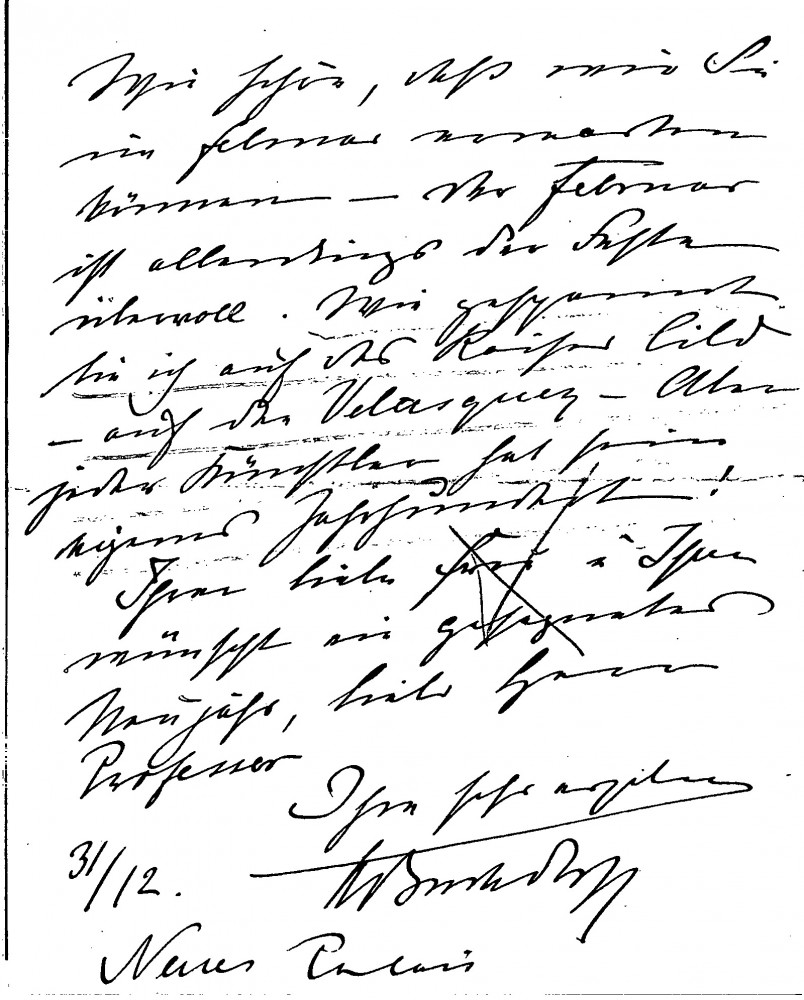 Wie schön, daß wir Sie
im Februar erwarten
können – der Februar
ist allerdings der Feste
übervoll. Wie gespannt
bin ich auf des Kaisers Bild
– auf den Velasquez – Aber
jeder Künstler hat sein
eigenes Jahrhundert!
Ihrer lieben Frau u Ihnen
wünscht ein gesegnetes
Neujahr, lieber Herr
Professor
Ihre sehr ergebene
31/12.
Neues Palais